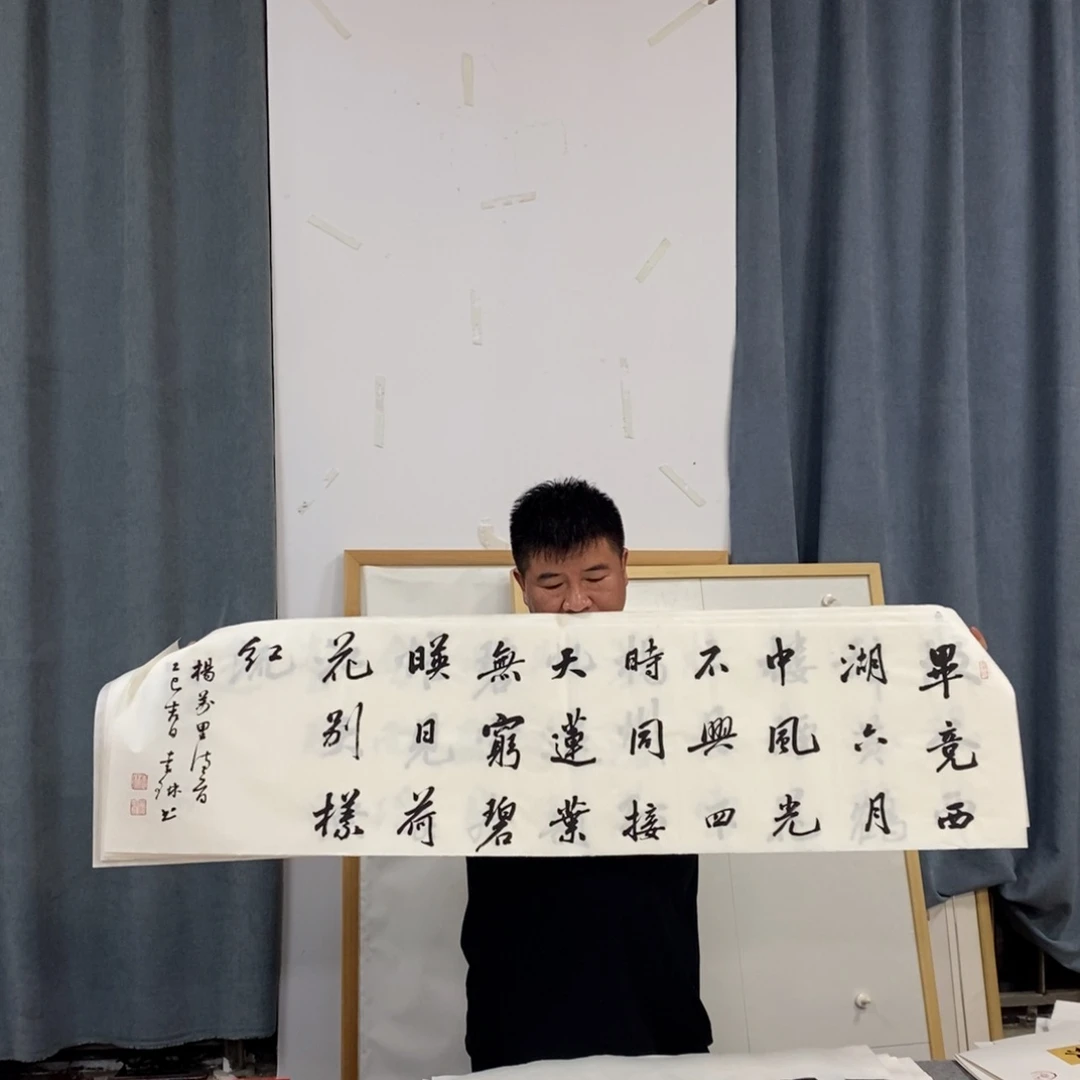 畢竟西
湖六月
中風光
不與四
時同接
天蓮葉
無窮碧
暎日荷
花别樣
红
楊萬里诗一首
乙巳春日